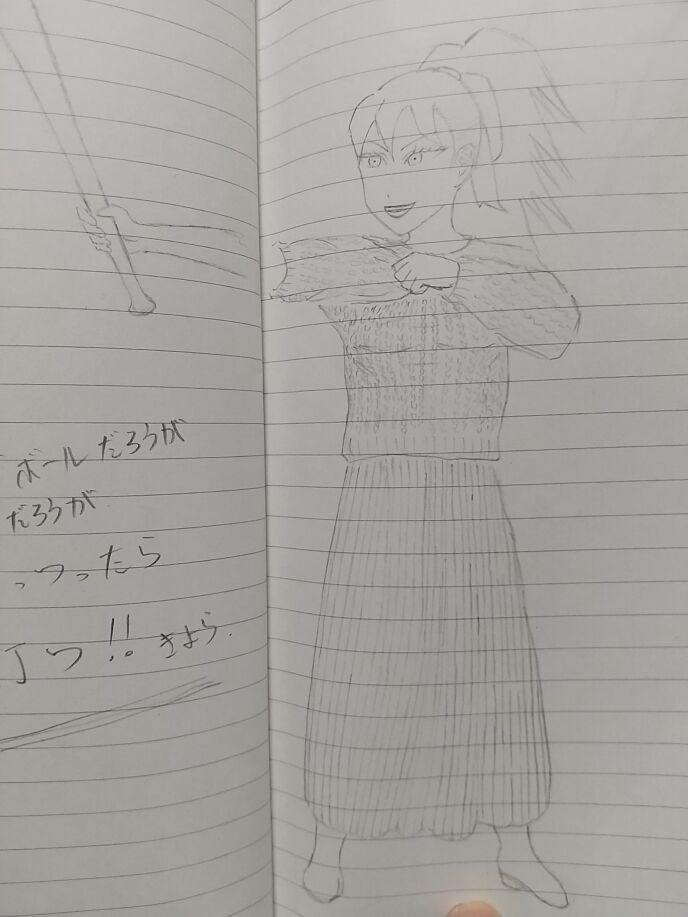 ボールだろうが
だろうが
っつったら
つ!! きよら.